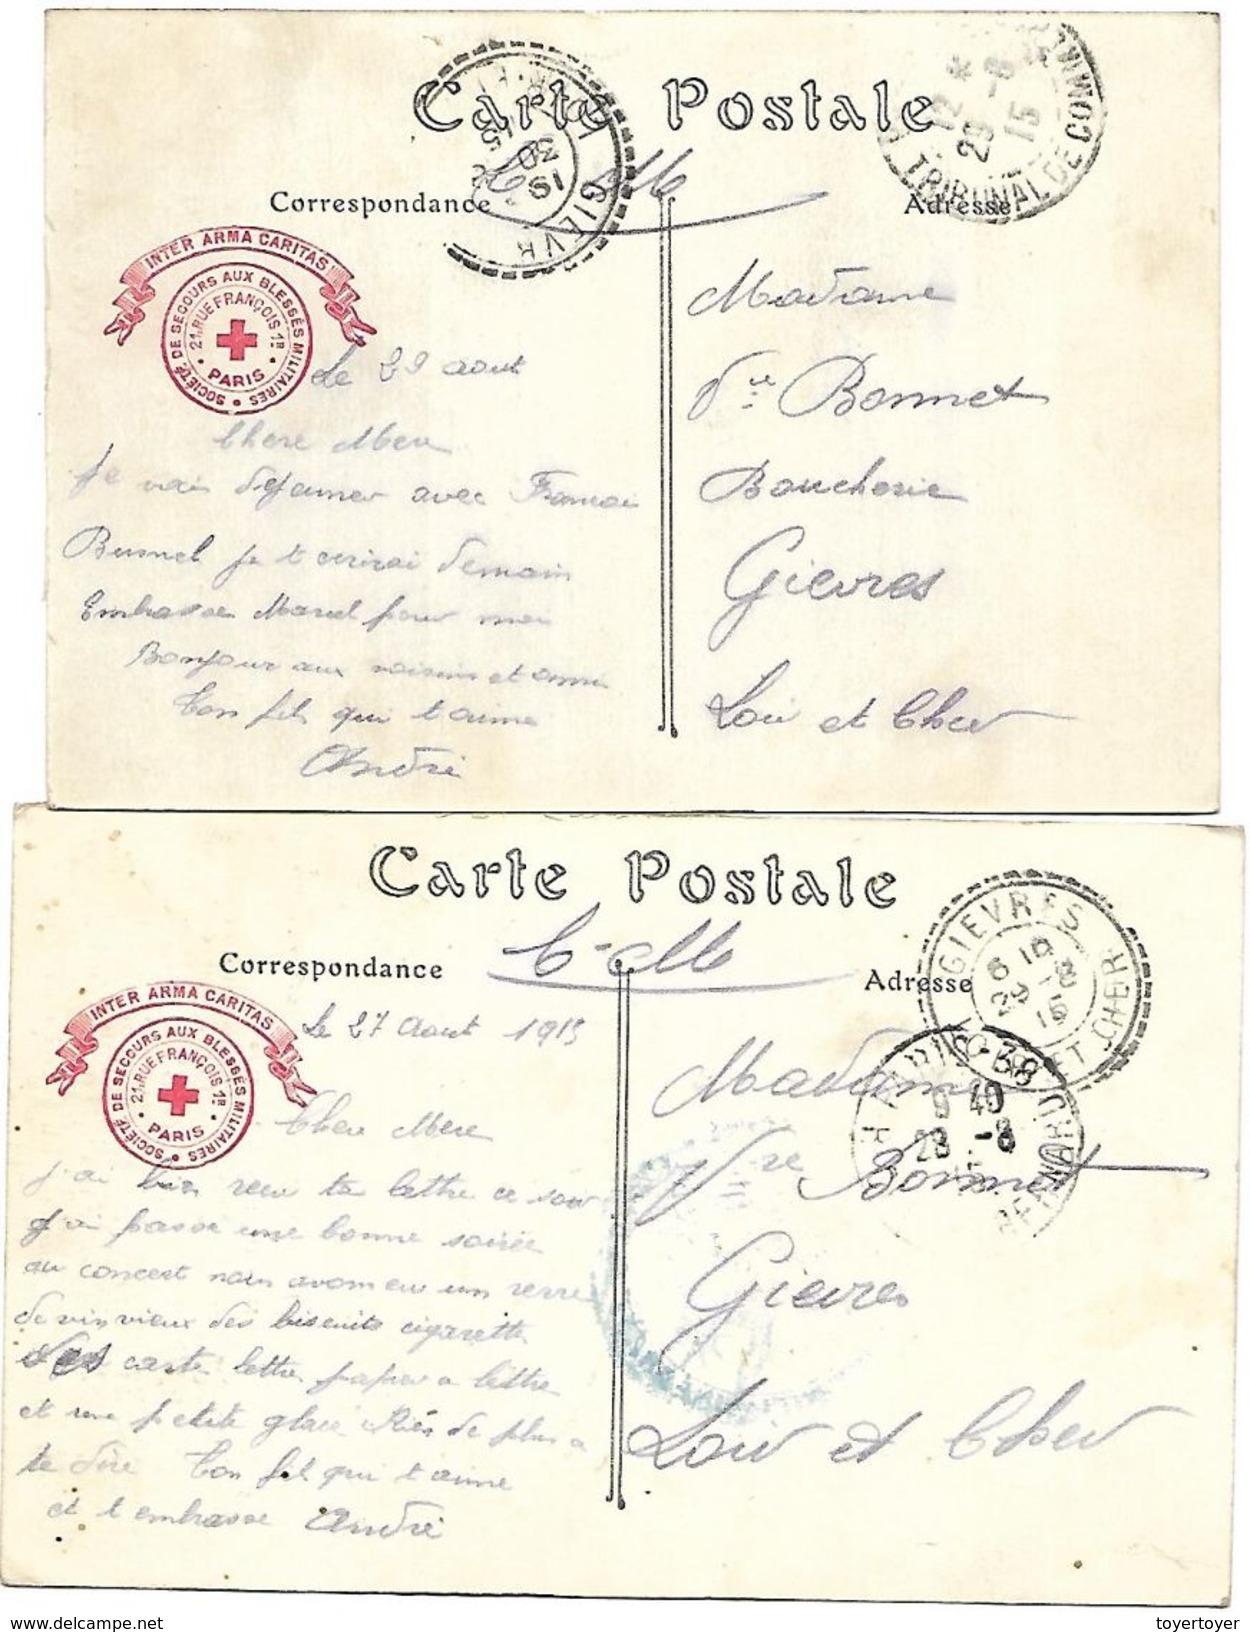 Carte Postale
C. M
Correspondance
Adresse
INTER ARMA CARITAS
SOCIÉTÉ DE SECOURS AUX BLESSÉS MILITAIRES
21, RUE FRANÇOIS 1ER
PARIS
GIEVR
19
30
TRIBUNAL DE COMMER
12 *
29 -8
15
Le 29 aout
Chere Mere
Je vais dejauner avec Francois
Busnel je t ecrirai demain
Embrasse Marcel pour moi
Bonjour aux voisins et amis
Ton fils qui t aime
André
Madame
Vve Bonnet
Boucherie
Gievres
Loir et Cher
Carte Postale
C - M
Correspondance
Adresse
INTER ARMA CARITAS
SOCIÉTÉ DE SECOURS AUX BLESSÉS MILITAIRES
21, RUE FRANÇOIS 1ER
PARIS
GIEVRES
ET CHER
15
PARIS - 38
9 40
28 -8
Le 27 Aout 1915
Chere Mere
j'ai bien recu ta lettre ce soir
j'ai passe une bonne soirée
au concert nous avons eu un verre
de vin vieux des biscuits cigarette
des carte lettre papier a lettre
et une petite glace Rien de plus a
te dire Ton fils qui t aime
et t embrasse André
Madame
Vve Bonnet
Gievres
Loir et Cher
www.delcampe.net
toyertoyer